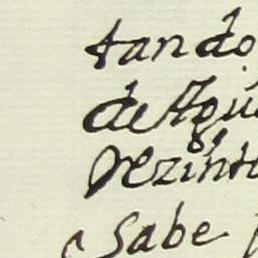 tando
de Agu
Rezinto
Sabe